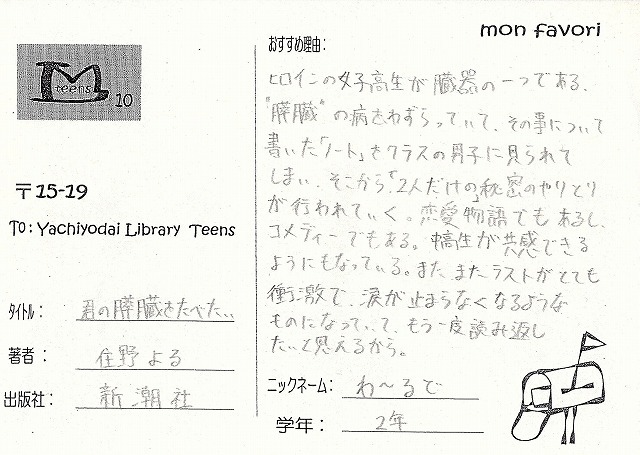 mon favori
M
teens
10
〒15-19
To: Yachiyodai Library Teens
タイトル： 君の膵臓をたべたい
著者： 住野よる
出版社： 新潮社
おすすめ理由：
ヒロインの女子高生が臓器の一つである、
"膵臓"の病をわずらっていて、その事について
書いた「ノート」をクラスの男子に見られて
しまい、そこから「2人だけの」秘密のやりとり
が行われていく。恋愛物語でもあるし、
コメディーでもある。中高生が共感できる
ようにもなっている。また、またラストがとても
衝激で、涙が止まらなくなるような
ものになっていて、もう一度読み返し
たいと思えるから。
ニックネーム： わ〜るど
学年： 2年